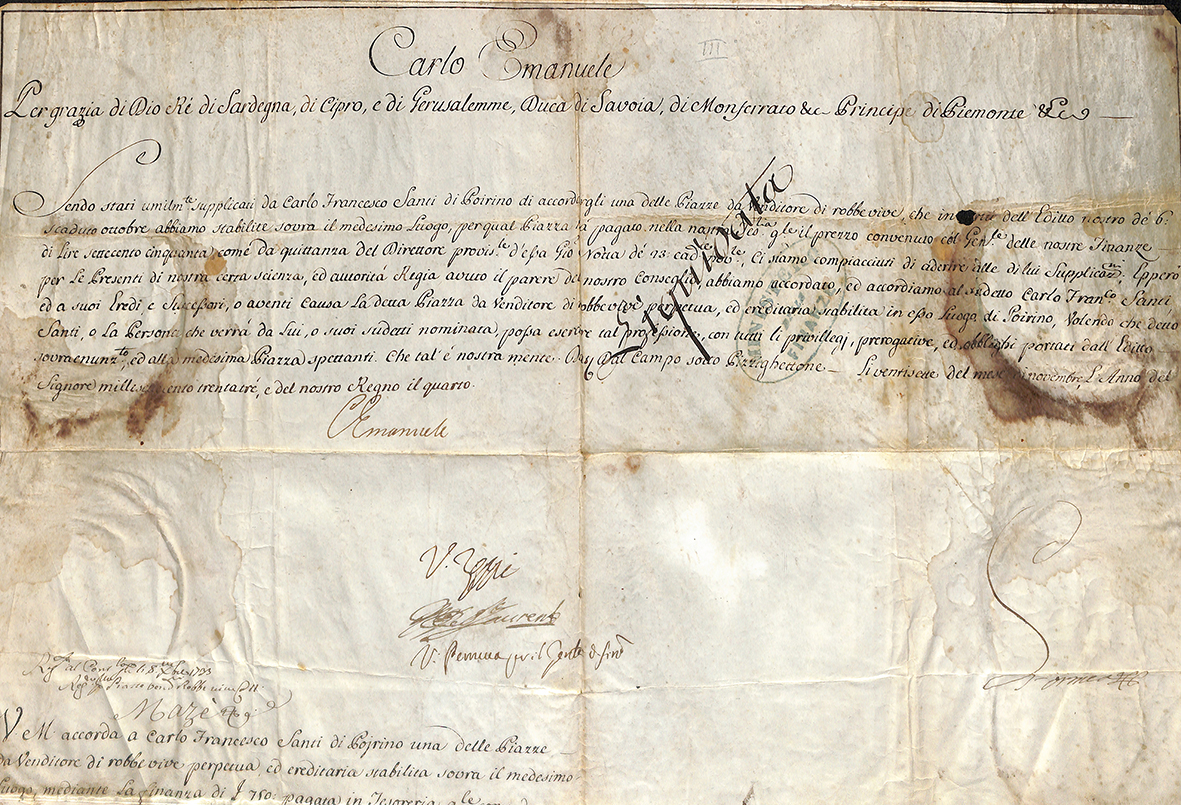 Carlo Emanuele
III
Per grazia di Dio Rè di Sardegna, di Cipro, e di Gerusalemme, Duca di Savoia, di Monferrato &c Principe di Piemonte &c
Sendo stati umilmte supplicati da Carlo Francesco Santi di Poirino di accordargli una delle Piazze da Venditore di robbe vive, che in dell'Editto nostro de' 6.
scaduto ottobre abbiamo stabilite sovra il medesimo Luogo, per qual Piazza à pagato nella gle il prezzo convenuto col Genle delle nostre Finanze
di Lire settecento cinquanta, come da quittanza del Direttore provisle d'essa Gio de' 23. cadte Ci siamo compiacciuti di aderire alle di lui Supplicani. Epperò
per Le Presenti di nostra certa scienza, ed autorità Regia avuto il parere del nostro Conseglio, abbiamo accordato, ed accordiamo al sudetto Carlo Franco Santi
ed a suoi Eredi, e Successori, o aventi causa La detta Piazza da Venditore di robbe vive perpetua, ed ereditaria stabilita in esso Luogo di Poirino, Volendo che detto
Santi, o La Persona che verrà da Lui, o suoi sudetti nominata, possa esercire tal professione, con tutti li privilleggi, prerogative, ed obblighi portati dall'Editto
sovraenunzto, ed alla medesima Piazza spettanti. Che tal'è nostra mente. Dal Campo sotto Pizzighettone Li ventisette del mese di novembre L'Anno del
Signore mille settecento trentatrè, e del nostro Regno il quarto.
Liquidata
FINANZE
CEmanuele
V. Zoppi
V. Perrona per il Genle di finze
1733
Mazè
V. M. accorda a Carlo Francesco Santi di Pojrino una delle Piazze
da Venditore di robbe vive perpetua, ed ereditaria stabilita sovra il medesimo
Luogo, mediante La finanza di £ 750: pagata in Tesoreria gle